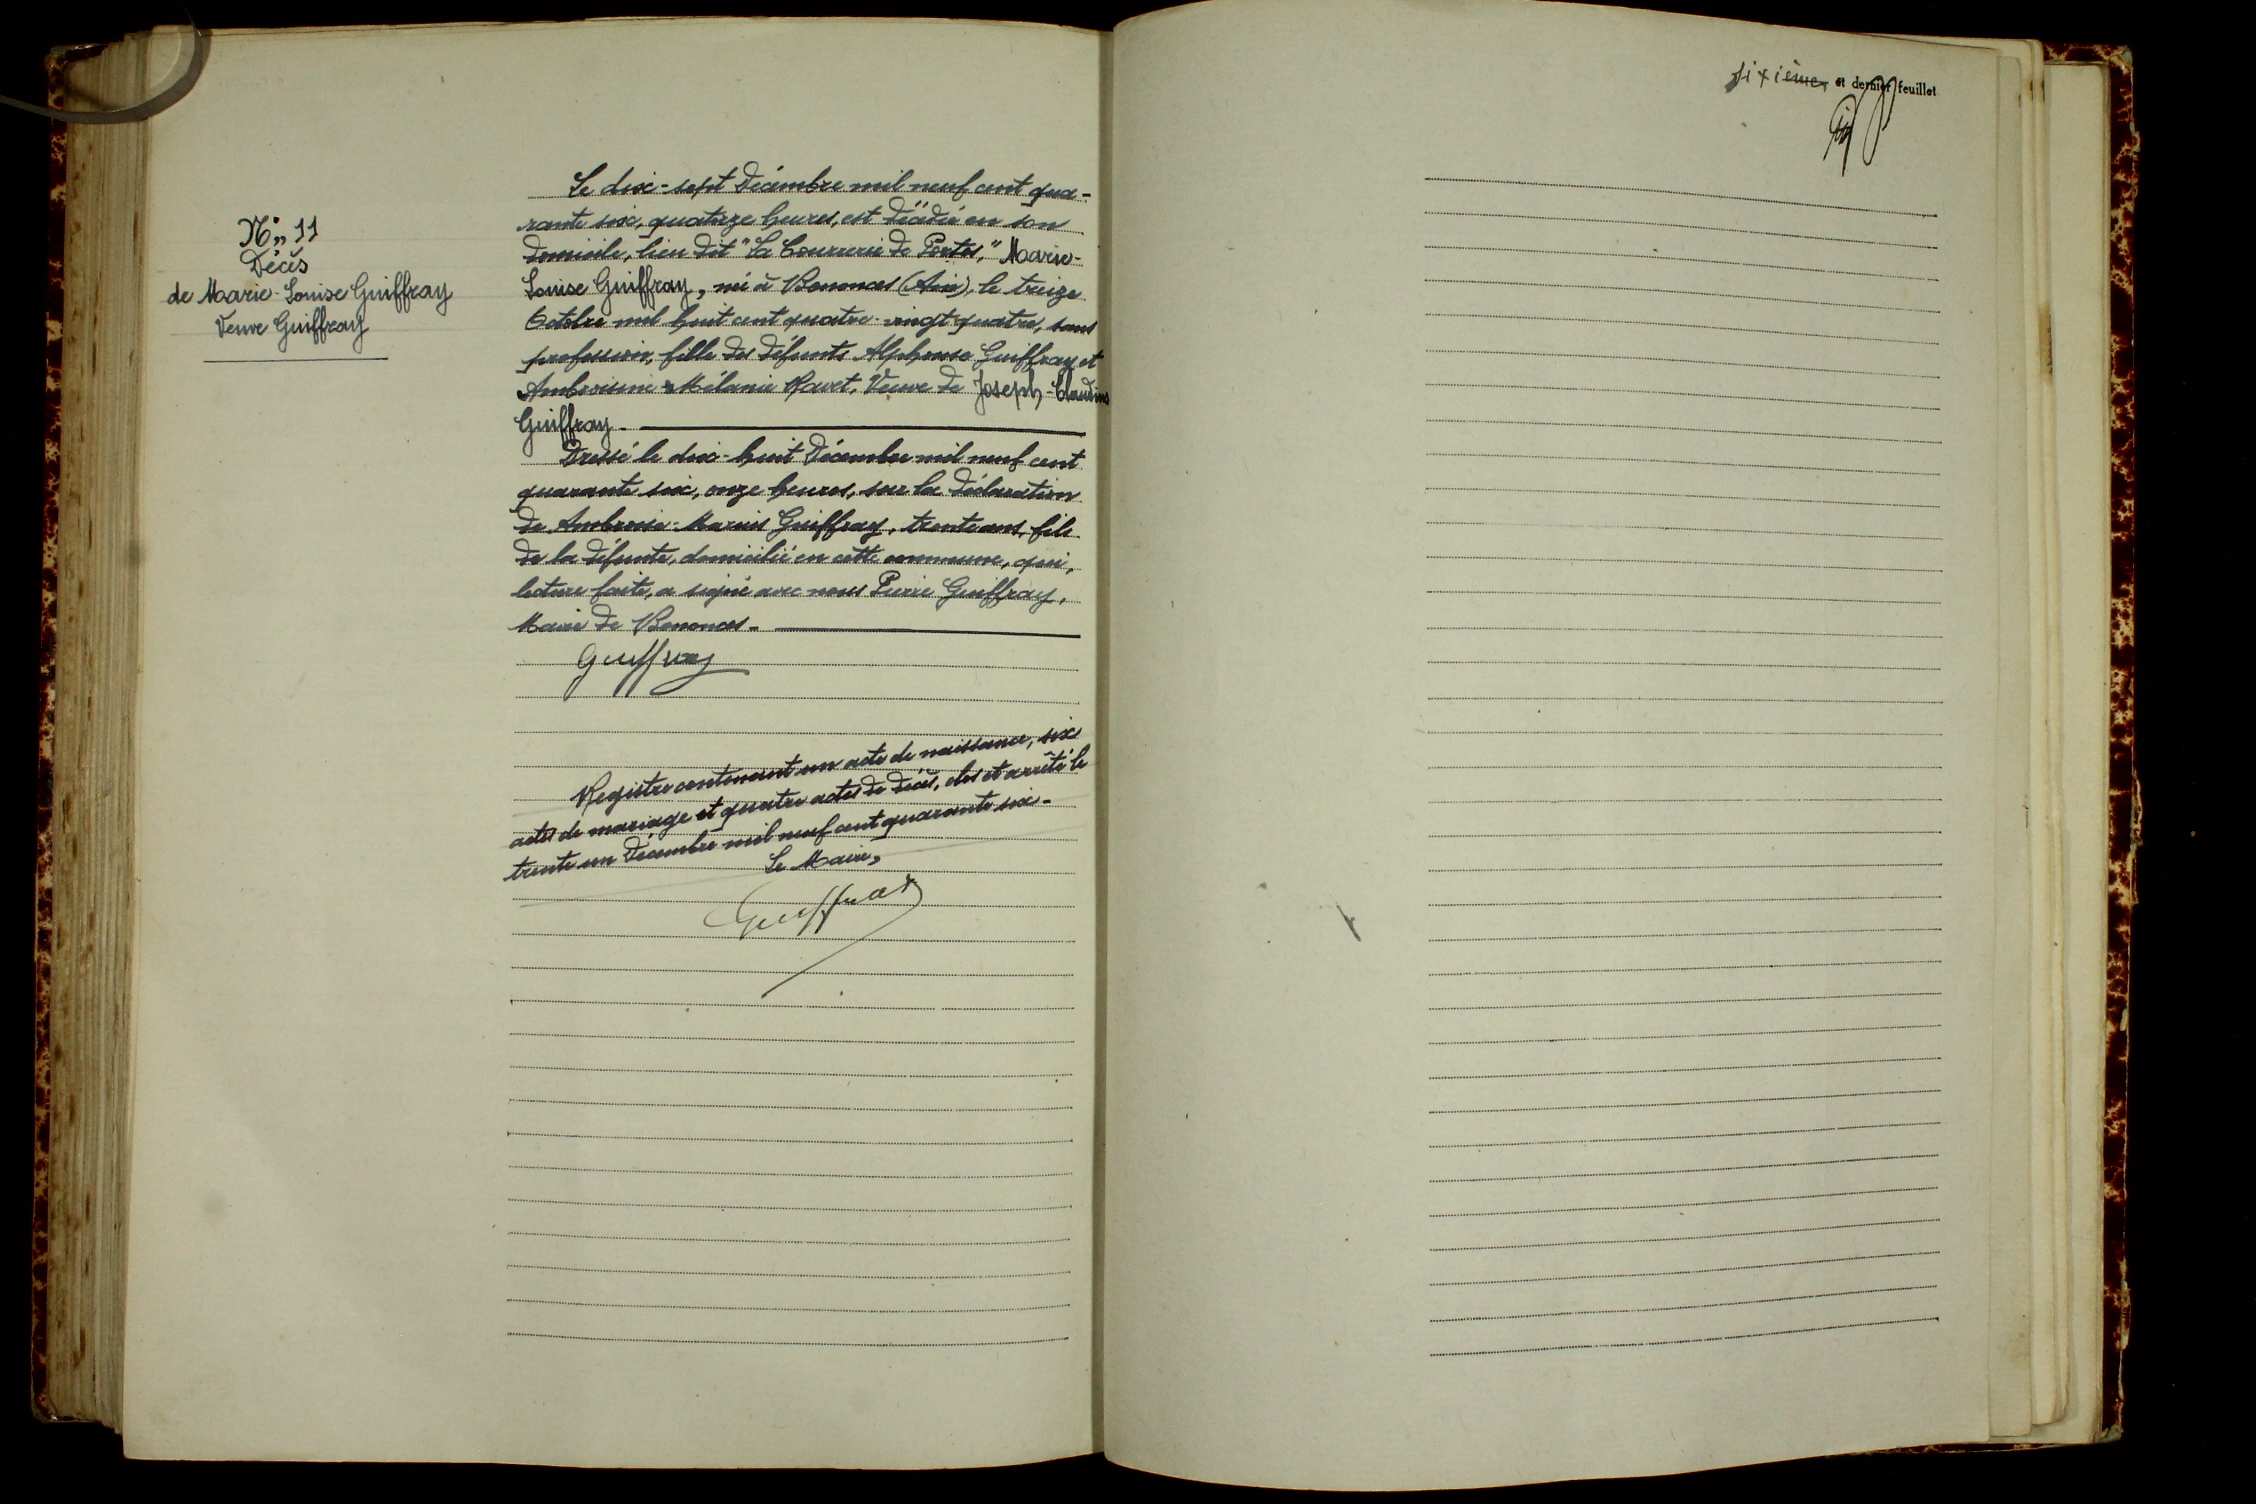 N° 11
Décès
de Marie-Louise Guiffray
Veuve Guiffray
Le dix-sept Décembre mil neuf cent qua-
rante six, quatorze heures, est décédée en son
domicile, lieu dit "La Courrerie de Portes," Marie-
Louise Guiffray, née à Benonces (Ain), le treize
Octobre mil huit cent quatre-vingt quatre, sans
profession, fille des défunts Alphonse Guiffray et
Ambroisine Mélanie Ravet, Veuve de Joseph-Claudius
Guiffray.
Dressé le dix-huit Décembre mil neuf cent
quarante six, onze heures, sur la déclaration
de Ambroise-Marius Guiffray, trente ans, fils
de la défunte, domicilié en cette commune, qui,
lecture faite, a signé avec nous Pierre Guiffray,
Maire de Benonces.
Guiffray
Registre contenant un acte de naissance, six
actes de mariage et quatre actes de décès, clos et arrêté le
trente un Décembre mil neuf cent quarante six.
Le Maire,
Guiffray
sixième et dernier feuillet